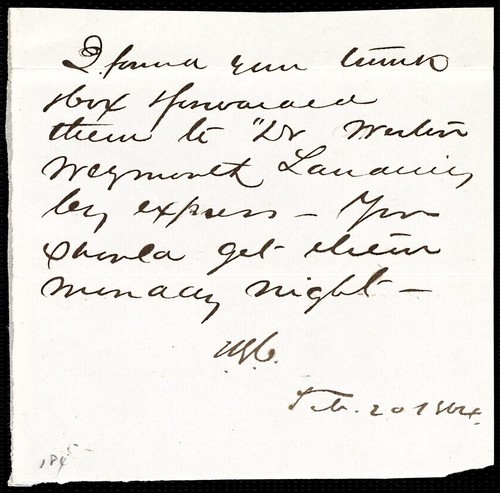 I found your trunk
& box & forwarded
them to "Dr Weston
Weymouth Landing
by express — You
should get them
Monday night —
Feb. 20 1864.
184